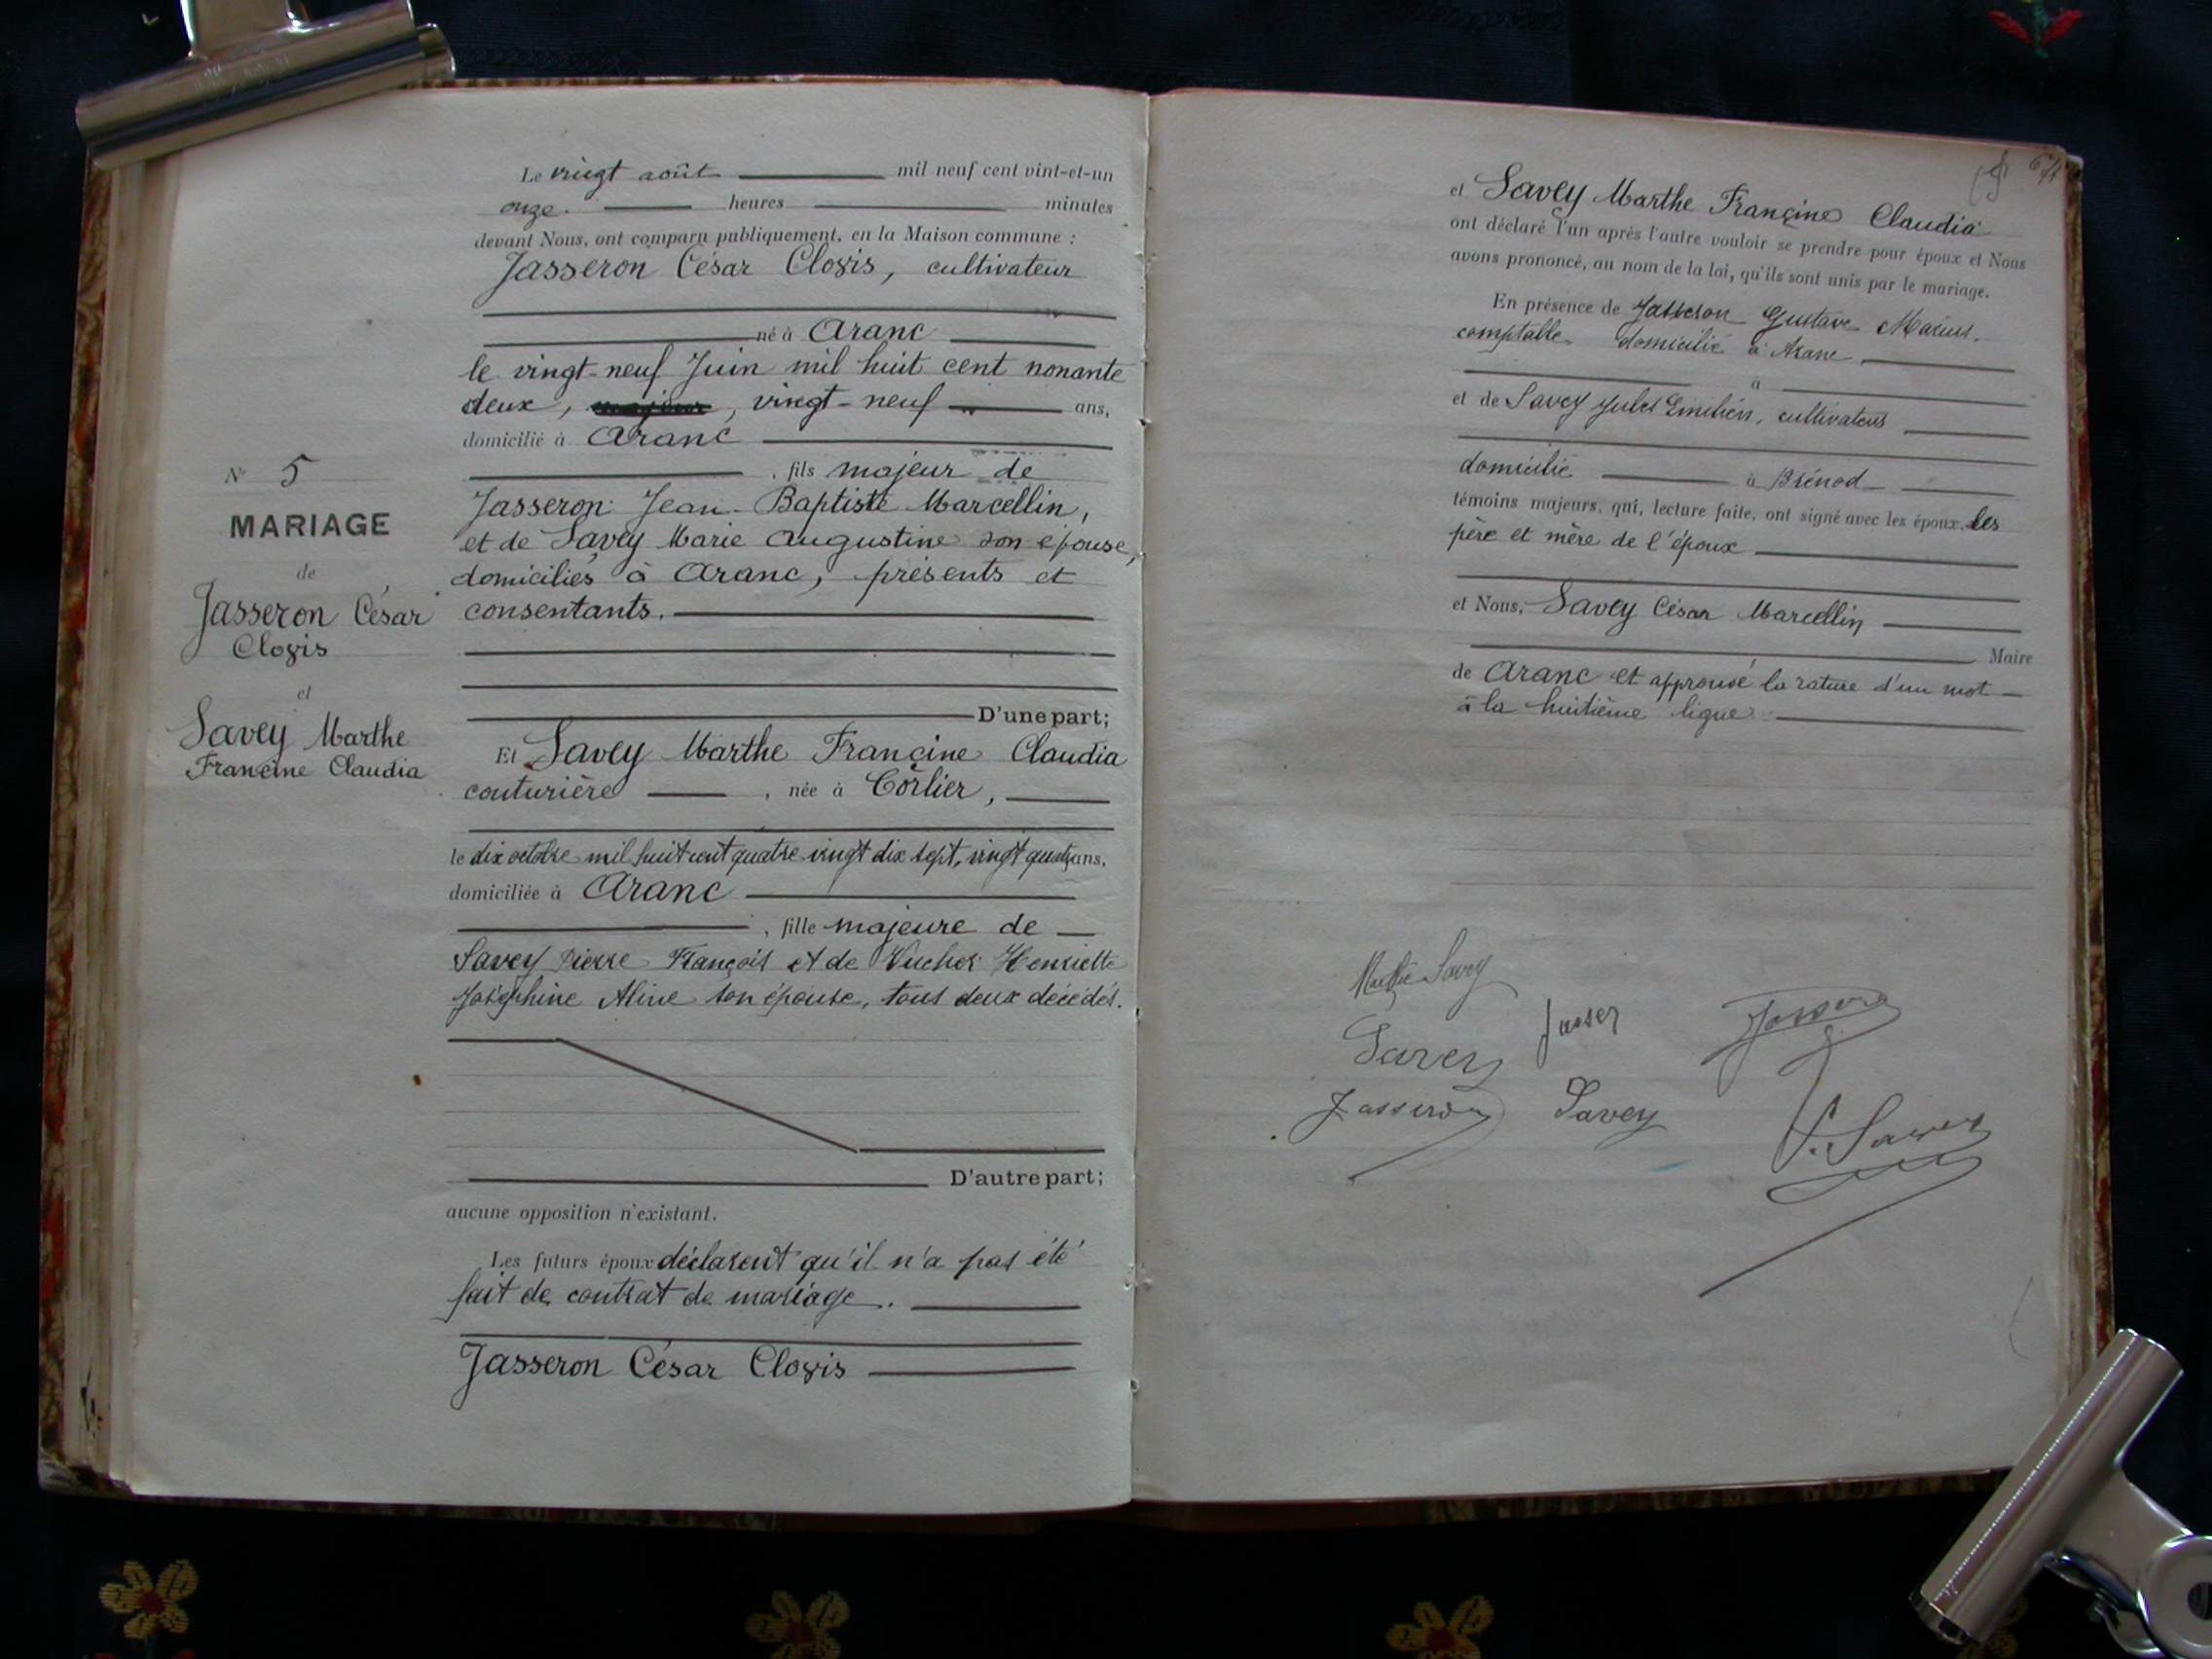 N° 5
MARIAGE
de
Jasseron César
Clovis
et
Savey Marthe
Francine Claudia
Le vingt août mil neuf cent vint-et-un
onze. heures minutes
devant Nous, ont comparu publiquement, en la Maison commune :
Jasseron César Clovis, cultivateur
né à Aranc
le vingt-neuf Juin mil huit cent nonante
deux, majeur, vingt-neuf ans,
domicilié à Aranc
, fils majeur de
Jasseron Jean-Baptiste Marcellin,
et de Savey Marie Augustine son épouse,
domiciliés à Aranc, présents et
consentants.
D'une part;
Et Savey Marthe Françine Claudia
couturière , née à Corlier,
le dix octobre mil huit cent quatre vingt dix sept, vingt quatre ans,
domiciliée à Aranc
, fille majeure de
Savey Pierre François et de Vucher Henriette
Joséphine Aline son épouse, tous deux décédés.
D'autre part;
aucune opposition n'existant.
Les futurs époux déclarent qu'il n'a pas été
fait de contrat de mariage.
Jasseron César Clovis
et Savey Marthe Françine Claudia
ont déclaré l'un après l'autre vouloir se prendre pour époux et Nous
avons prononcé, au nom de la loi, qu'ils sont unis par le mariage.
En présence de Jasseron Gustave Marius,
comptable domicilié à Aranc
à
et de Savey Jules Emilien, cultivateur
domicilié à Brénod
témoins majeurs, qui, lecture faite, ont signé avec les époux, les
père et mère de l'époux
et Nous, Savey César Marcellin
Maire
de Aranc et approuvé la rature d'un mot
à la huitième ligne
Marthe Savey
Jasser
Jasseron
Savey
Jasseron
Savey
S. Savey